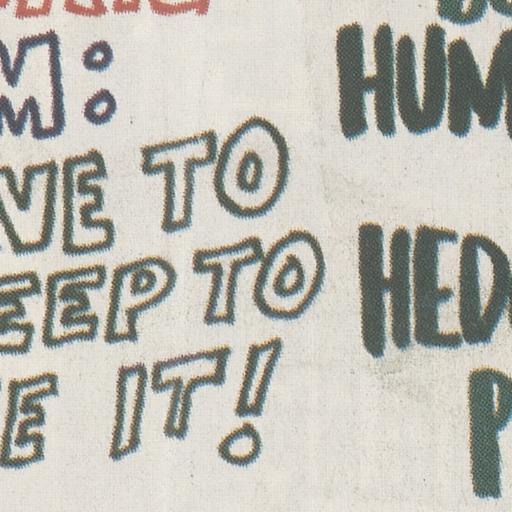 M:
VE TO
EEP TO
E IT!
HUM
HED
P